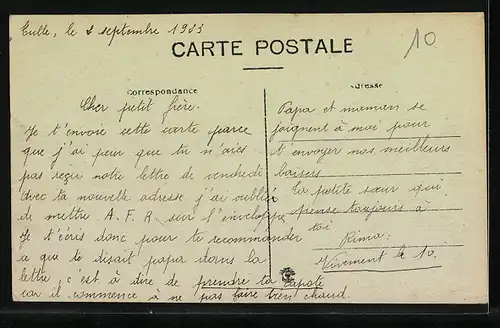 Tulle, le 2 septembre 1933
10
CARTE POSTALE
Correspondance
Adresse
Cher petit frère.
Je t'envoie cette carte parce
que j'ai peur que tu n'aies
pas reçu notre lettre de vendredi
avec ta nouvelle adresse j'ai oublié
de mettre A. F. R. sur l'enveloppe
Je t'écris donc pour te recommander
ce que te disait papa dans la
lettre, c'est à dire de prendre ta capote
car il commence à ne pas faire bien chaud.
Papa et maman se
joignent à moi pour
t'envoyer nos meilleurs
baisers.
Ta petite sœur qui
pense toujours à
toi
Rima.
Vivement le 10.